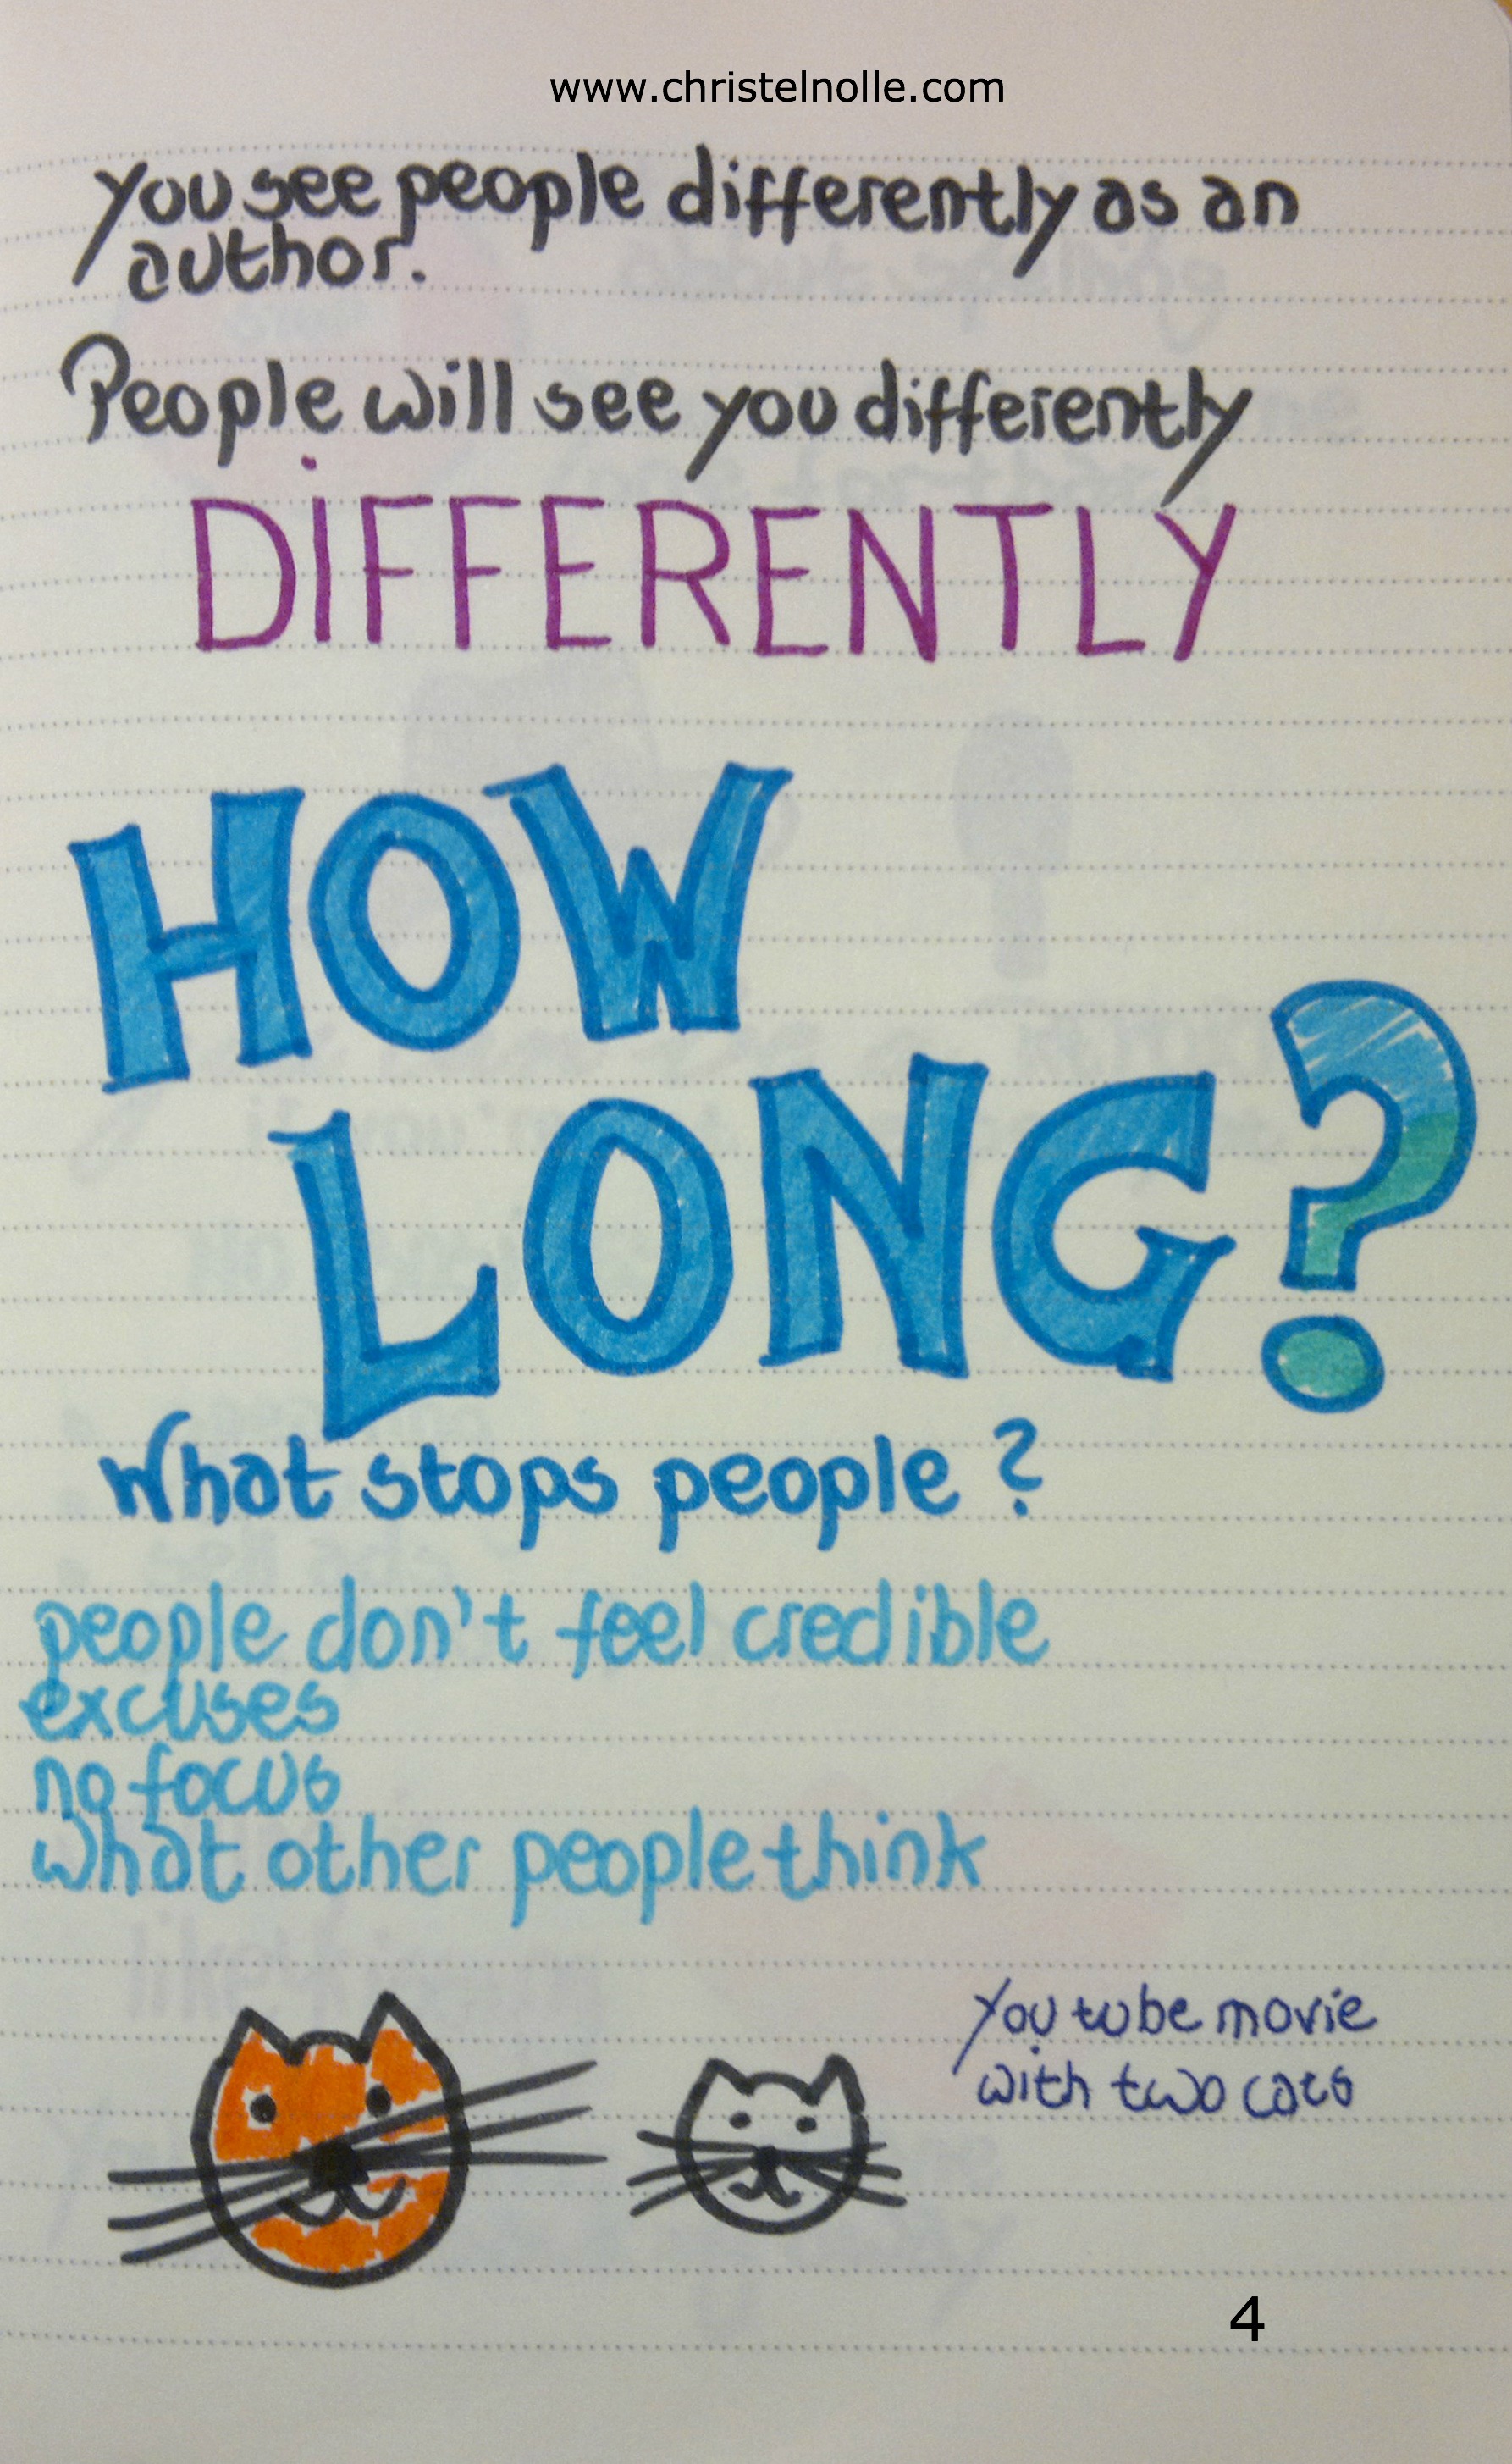 www.christelnolle.com
you see people differently as an
author.
People will see you differently
DiFFERENTLY
HOW
LONG?
What stops people?
people don't feel credible
excuses
no focus
what other people think
You tube movie
with two cats
4